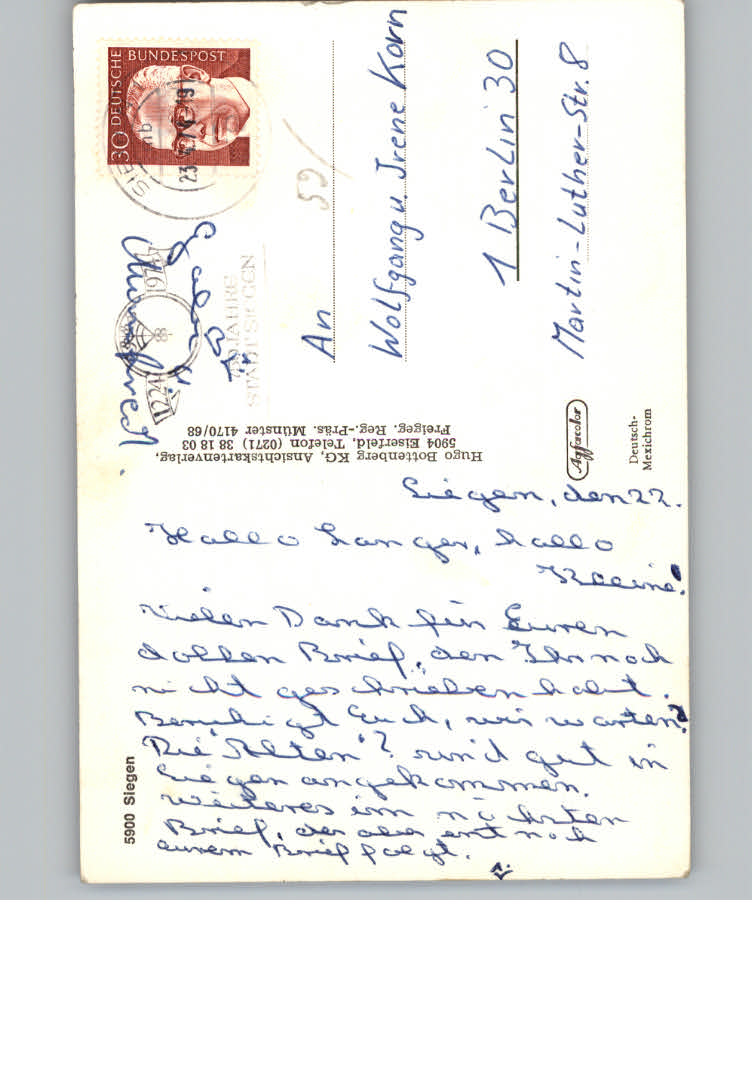 5900 Siegen
Siegen, den 22.
Hallo Langer, hallo
Kleine!
vielen Dank für Euren
dollen Brief, den Ihr noch
nicht geschrieben habt.
Beruhigt Euch, wir warten?
Die "Alten"? sind gut in
Siegen angekommen.
Weiteres im nächsten
Brief, der aber erst nach
eurem Brief folgt.
Manfred
Hugo Bottenberg KG, Ansichtskartenverlag,
5904 Eiserfeld, Telefon (0271) 38 18 03
Freigeg. Reg.-Präs. Münster 4170/68
Agfacolor
Deutsch-
Mexichrom
DEUTSCHE BUNDESPOST
30
1224
1974
JAHRE
STADT SIEGEN
59/
An
Wolfgang u. Irene Korn
1 Berlin 30
Martin-Luther-Str. 8